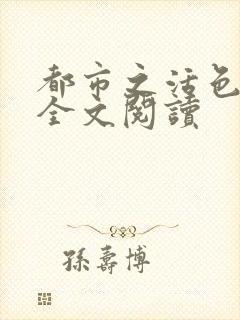 都市之活色
全文閱讀
孫壽博